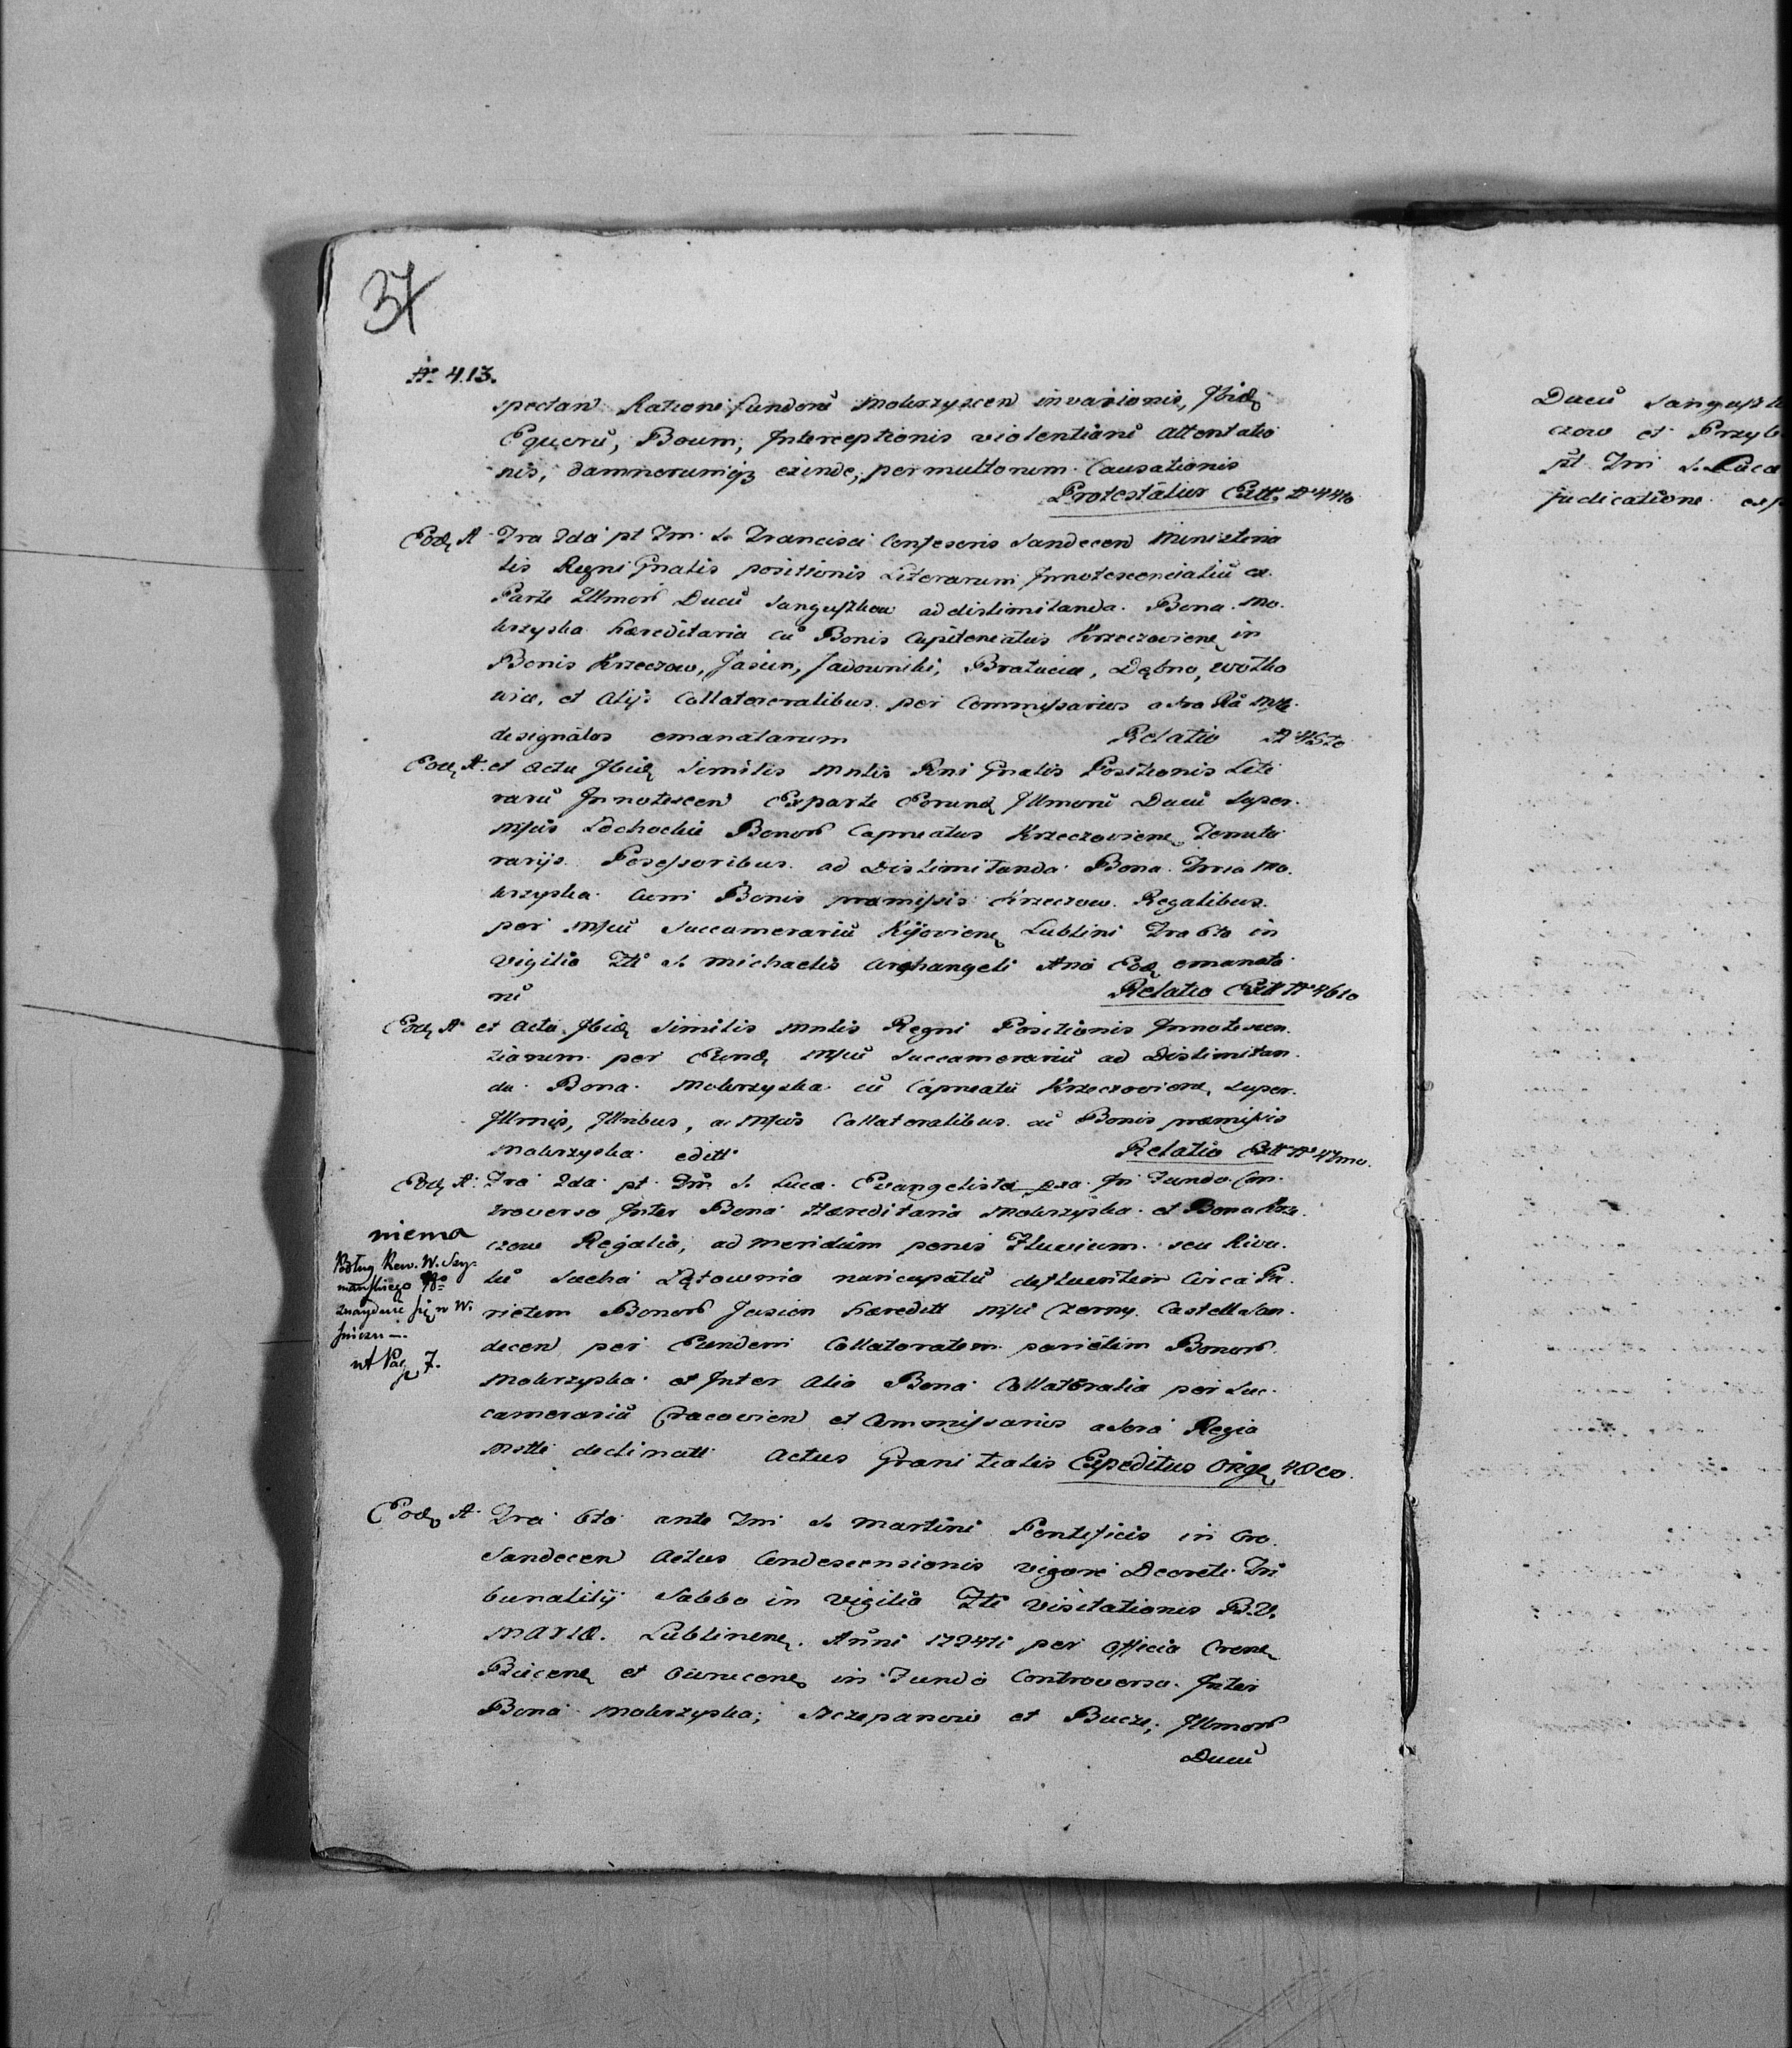 37
Aº 413.
spectan Rationi fundorũ Mokrzyscen invasionis, Ibid
Equorũ, Boum, Interceptionis violentiarũ attentatio
nis, damnorumqz exinde, permultorum Causationis
Protestatiur Extt. Aº 44to
Eod A Fra 2da pt Fm S. Francisci Confesoris Sandecen Ministeria
lis Regni Gnalis positionis Literarum Innotescencialiũ ex
Parte Illmorũ Ducũ Sanguszkow ad dislimitanda Bona Mo.
krzyska hæreditaria cũ Bonis Capiteneatus Krzeczoviens in
Bonis Krzeczow, Jasien, Jadowniki, Bratucia, Dębno, Wołko
wice, et Alijs Collateralibus per Commissarios a Sra Rã Mtte
designatos emanatarum Relatio A 45to
Eod A et Actu Ibid Similis Mnlis Rni Gnalis Positionis Lite
rarũ Innotescen Exparte Eorund Illmorũ Ducũ Super
Mfcis Lochockie Bonorũ Capneatus Krzeczoviens Tenuta
rarijs Possessoribus ad Dislimitanda Bona Mo.
krzyska Cum Bonis præmissis Krzeczow Regalibus
per Mfcũ Succamerariũ Kijoviens Lublini Fra 6to in
Vigilia Fti S. Michaelis Archangeli Ano Eod emanata
rũ Relatio Extt Aº 46to
Eod A et Actu Ibid Similis Mnlis Regni Positionis Innotescen
tiarum per Eund Mfcũ Succamerariũ ad Dislimitan
da Bona Mokrzyska cũ Capneatu Krzeczoviens super
Illmis, Illribus, ac Mfcis Collateralibus cũ Bonis præmissis
Mokrzyska editt Relatio Extt Aº 47mo.
Eod A Fra 2da pt Fm S. Luca Evangelista In Fundo Con
troverso Inter Bona Hæreditaria Mokrzyska et Bona Krze
czow Regalia, ad meridiem penes Fluvium seu Rivu
lũ Sucha Łętownia nuncupatũ defluentem Circa Pa
rietem Bonorũ Jasien hæreditt Mfci Czerny Castell San
decen per Eundem Collateralem parietem Bonorũ
Mokrzyska et Inter Alia Bona Collateralia per Suc
camerariũ Cracovien et Commissarios a Sera Regia
Mtte declinatt Actus Granitialis Expeditus Orige 48vo.
niema
Podług Rew. W. Szy-
mańskiego
znayduie się w W.
śniczu —.
ut Pag 7.
Eod A Fra 6to ante Fm S. Martini Pontificis in Cro
Sandecen Actus Condescensionis vigore Decreti Tri
bunalitij Sabbo in Vigilia Fti Visitationis B.V.
MARIÆ. Lublinens. Anni 1724ti per Officia Crens
Biecens et in Fundo Controverso Inter
Bona Mokrzyska, Szczepanow et Bucze, Illmorũ
Ducũ
Ducũ Sanguszk
czow et Przyb
pt Fm S. Luca
judicatione